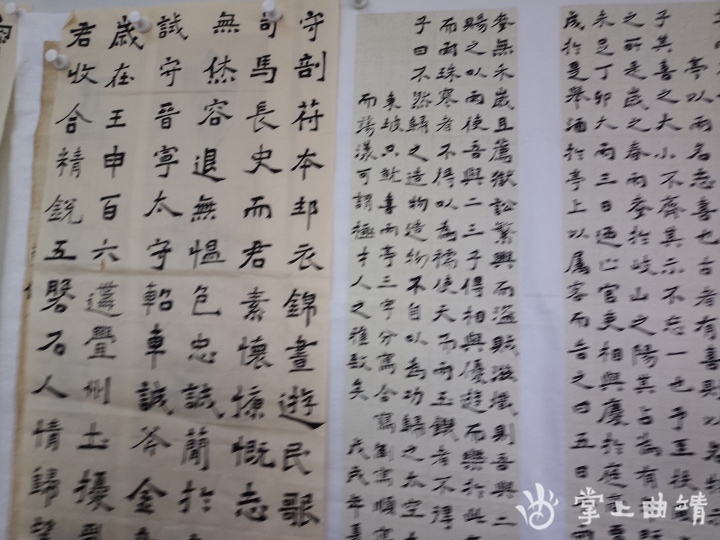 亭以雨名志喜也古者有喜則以名
子其喜之大小不齊其示不忘一也予至扶
之所是歲之春雨麥於岐山之陽其占為有
未足丁卯大雨三日迺止官吏相與慶於庭
成於是舉酒於亭上以屬客而告之曰五日
麥無禾歲且薦獄訟繁興而盜賊滋熾則吾與二
賜之以雨使吾與二三子得相與優遊而樂於此
而雨珠寒者不得以為襦使天而雨玉饑者不得
子曰不然歸之造物造物不自以為功歸之太空
東坡只就喜雨亭三字分寫合寫倒寫順寫
而蕩漾可謂極才人之雅致矣 戊戌年
守剖符本邦衣錦晝遊民歌
司馬長史而君素懷慷慨志
無怯容退無愠色忠誠簡於
誠守晉寧太守軺車誠荅金
歲在壬申百六遘亹州土擾
君收合精銳五磐石人情歸望
掌上曲靖